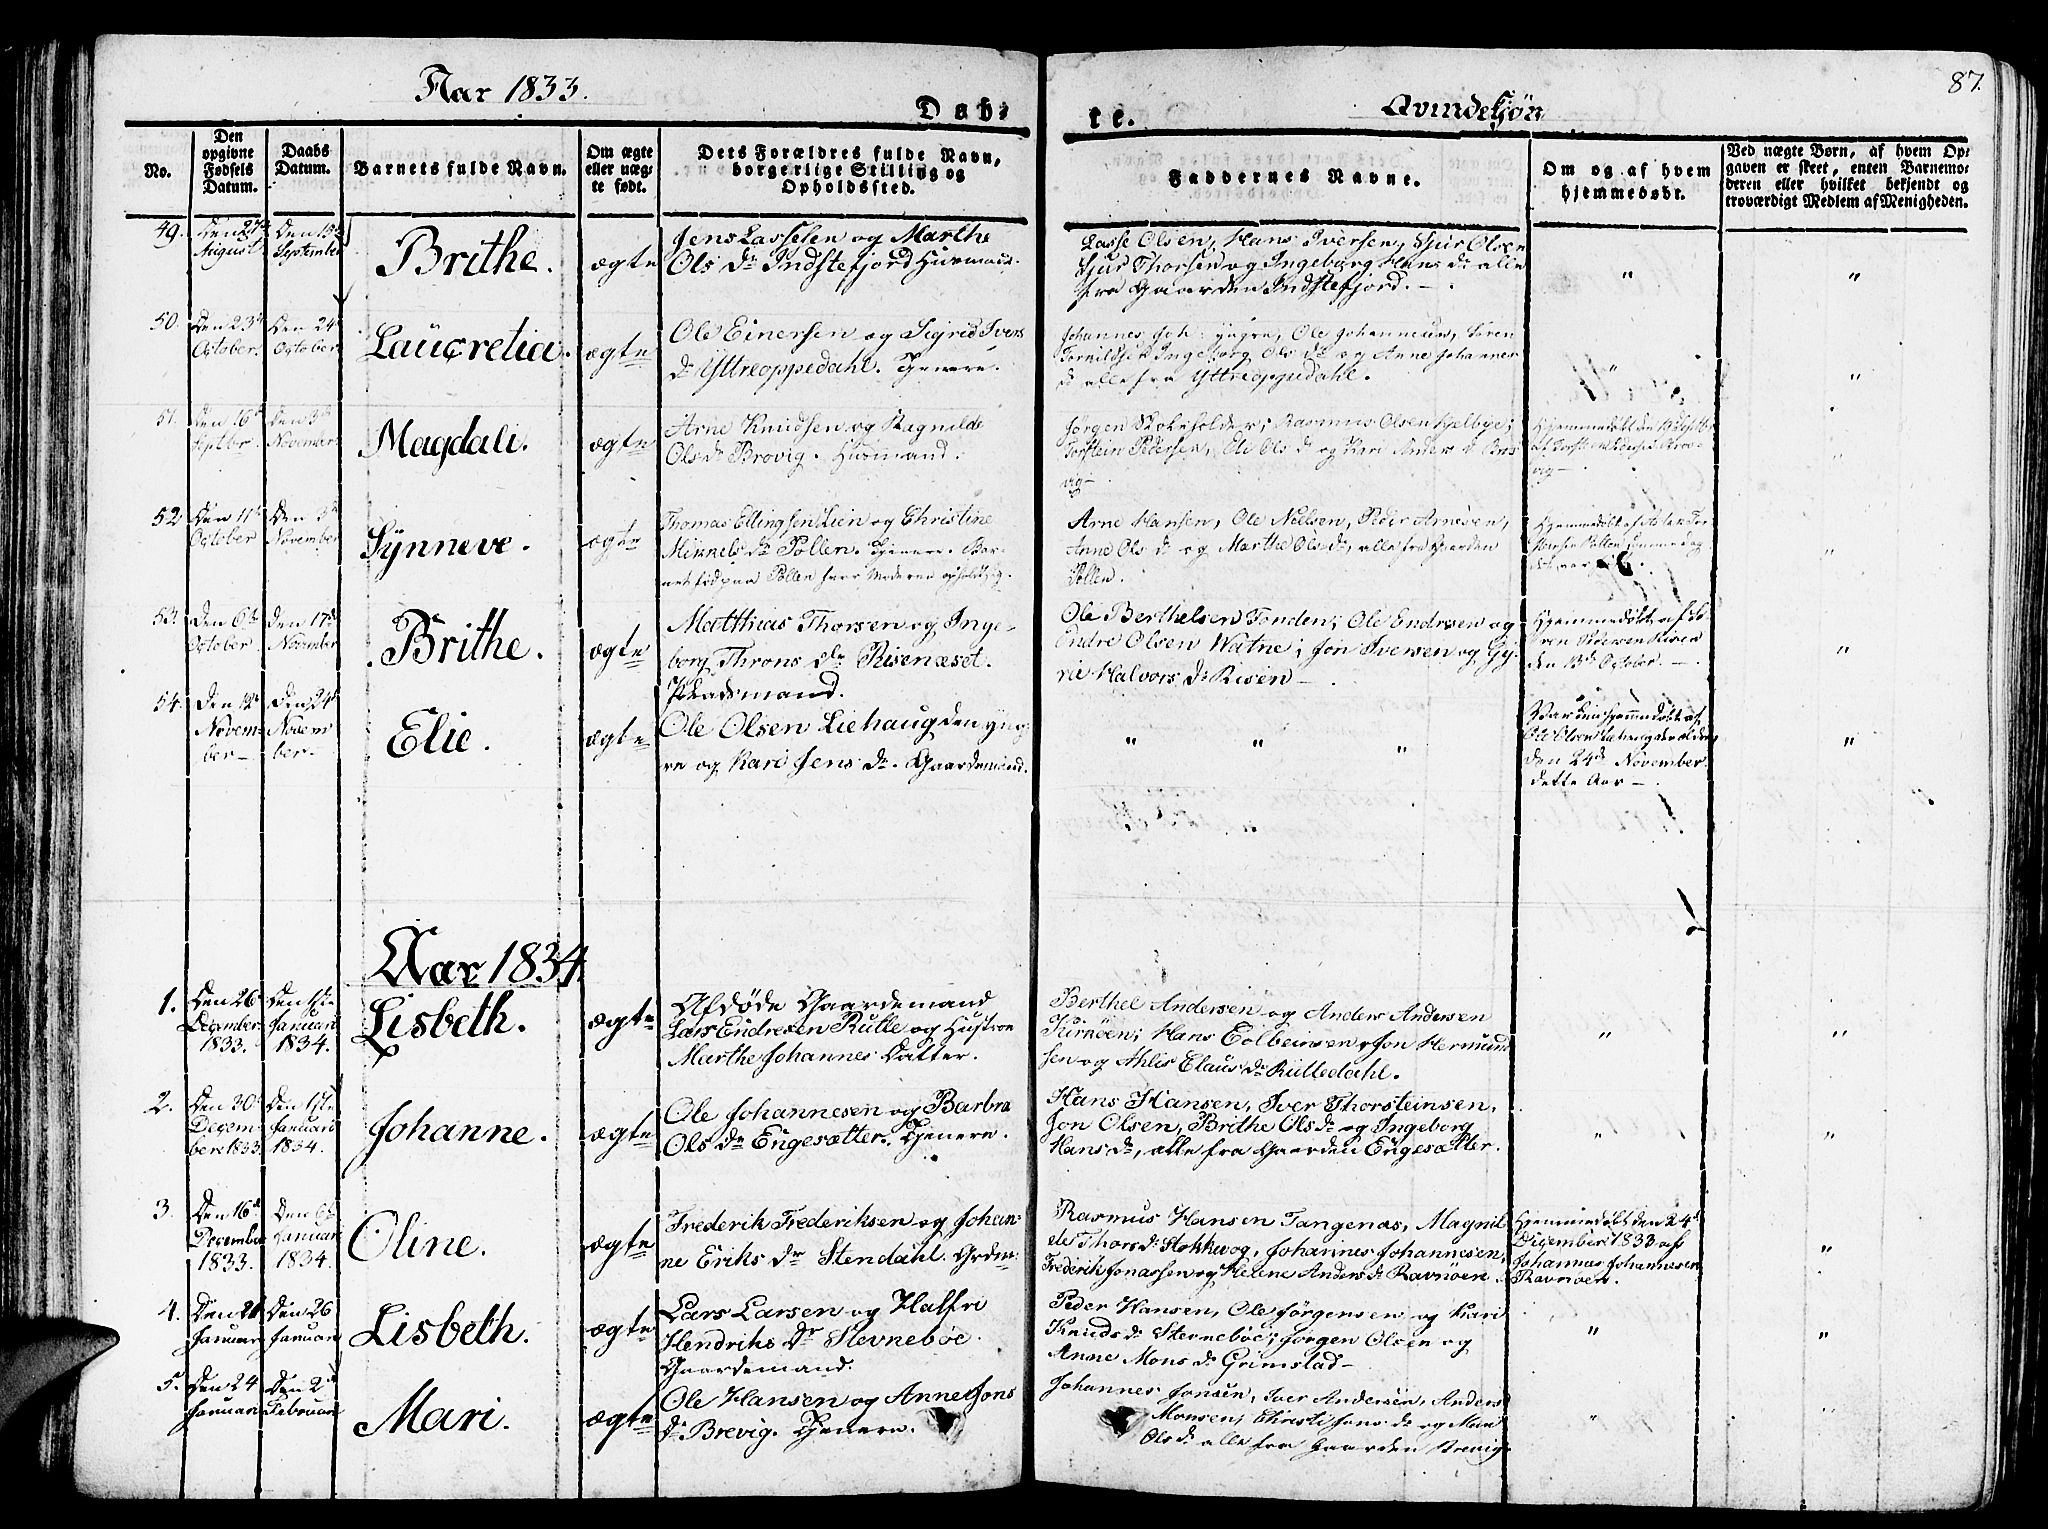 Aar 1833.
Døb-
te.
Qvindekjön
87.
No.
Den opgivne Fødsels Datum.
Daabs Datum.
Barnets fulde Navn.
Om ægte eller uægte født.
Dets Forældres fulde Navn, borgerlige Stilling og Opholdssted.
Faddernes Navne.
Om og af hvem hjemmedøbt.
Ved uægte Børn, af hvem Opgaven er skeet, enten Barnemoderen eller hvilket bekjendt og troværdigt Medlem af Menigheden.
49.
Den 27de
August
Den 15de
September
Brithe.
ægte
Jens Lassesen og Marthe
Ols Dr Indstefjord Huusmand.
Lasse Olsen, Hans Iversen, Sjur Olsen
Sjur Thorsen og Ingeborg Hans Dr alle
fra Gaarden Indstefjord. -
50.
Den 23de
October.
Den 24de
October
Laucretia.
ægte
Ole Einersen og Sigrid Ivers
Dr Yttreoppedahl. Tjenere.
Johannes Joh: yngre, Ole Johannesen, Søren
Ingeborg Ols Dr og Anne Johannes
Dr alle fra Yttreoppedahl.
51.
Den 16de
Septbr.
Den 3de
November
Magdali.
ægte
Arne Knudsen og Ragnilde
Ols Dr Brovig. Huusmand.
Jørgen Rasmus Olsen
Torstein Pedersen, Eli Ols Dr og Kari Anders Dr Bro
vig-
Hjemmedøbt den
af Torsten Pedersen Bro
vig-
52
Den 11te
October
Den 3de
November
Synneve.
ægte
Thomas Ellingsen Lien og Christine
Mikkels Dr Pollen. Tjenere. Bar-
net fød paa Pollen hvor Moderen opholdt sig.
Arne Hansen, Ole Nielsen, Peder Arnesen,
Anne Ols Dr og Marthe Ols Dr, alle fra Gaarden
Pollen.
Hjemmedøbt af
Pollen samme dag
det var
53.
Den 6te
October
Den 17de
November
Brithe.
ægte
Matthias Thorsen og Inge-
borg Throns Dr Risenæset.
Pladsmand.
Ole Berthelsen Tonden; Ole Endresen og
Endre Olsen Watne; Jon Iversen og Gy-
rie Halvors Dr Risen -
Hjemmedøbt af Sø-
ren Pedersen Risen
den 13de October. -
54.
Den 12te
Novem-
ber-
Den 24de
Novem
ber-
Elie.
ægte
Ole Olsen Liehaug den yng-
re og Kari Jens Dr. Gaardemand.
Var den hjemmedøbt af
Ole Olsen Liehaug den ældre
den 24de November
dette Aar -.
Aar 1834.
1.
Den 26de
December
1833.
Den 1ste
Januari
1834.
Lisbeth.
ægte
Afdøde Gaardemand
Lars Endresen Rutle og Hustroe
Marthe Johannes Datter.
Berthel Andersen og Anders Andersen
Furnöen; Hans Eolbeinsen, Jon Hermund
sen og Ahlis Claus Dr Rutledahl.
2.
Den 30te
Decem-
ber 1833
Den 1ste
Januari
1834.
Johanne.
ægte
Ole Johannesen og Barbra
Ols Dr Engesætter. Tjenere.
Hans Hansen, Iver Thorsteinsen,
Jon Olsen, Brithe Ols Dr og Ingeborg
Hans Dr, alle fra Gaarden Engesætter.
3.
Den 16de
December
1833.
Den 6te
Januari
1834.
Oline.
ægte
Frederik Frederiksen og Johan-
ne Eriks Dr Stendahl. Grdm:
Rasmus Hansen Tangenæs, Magnil
de Thors Dr Stokkevog, Johannes Johannesen,
Frederik Jonassen og Helene Anders Dr Ravnöen
Hjemmedøbt den 24de
December 1833 af
Johannes Johannesen
Ravnöen.
4.
Den 21
Januari
Den 26
Januari
Lisbeth.
ægte
Lars Larsen og Halfri
Hendriks Dr Stevneböe.
Gaardemand.
Peder Hansen, Ole Jørgensen og Kari
Knuds Dr Stevneböe; Jørgen Olsen og
Anne Mons Dr Grimstad-
5.
Den 24
Januari
Den 2de
Februari
Mari.
ægte
Ole Hansen og Anne Jons
Dr Brevig. Tjenere.
Johannes Jonsen, Iver Andersen, Anders
Monsen, Christi Jons Dr og Mari
Ols Dr alle fra Gaarden Brevig.